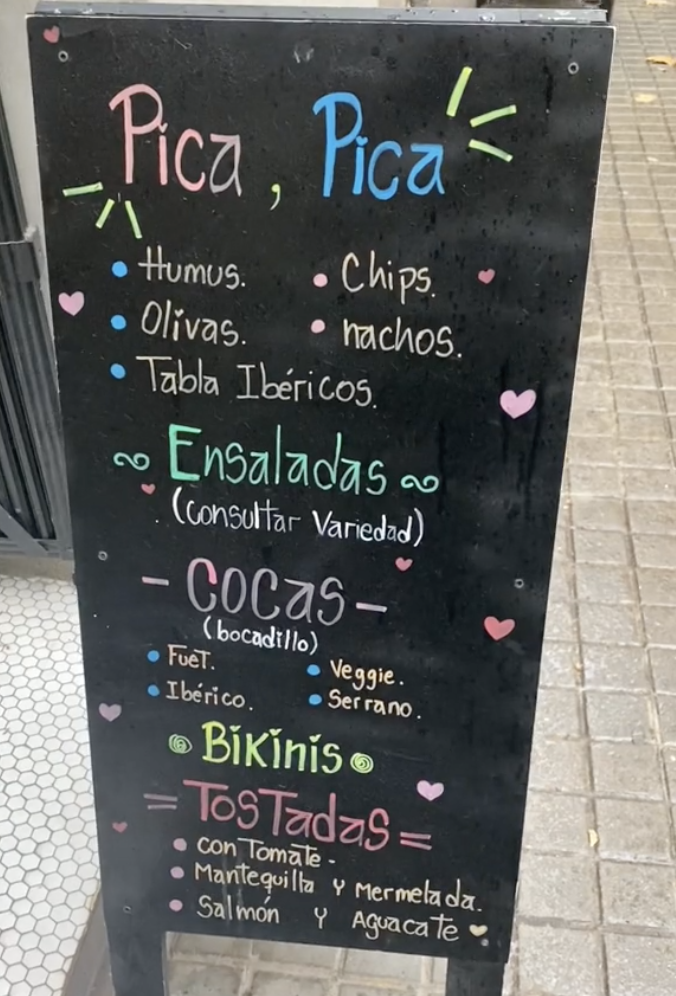 Pica, Pica
• Humus. • Chips.
• Olivas. • nachos.
• Tabla Ibéricos.
Ensaladas
(consultar Variedad)
- COCAS -
(bocadillo)
• FueT. • Veggie.
• Ibérico. • Serrano.
Bikinis
= TosTadas =
• con Tomate-
• Mantequilla y Mermelada.
• Salmón y AguacaTe